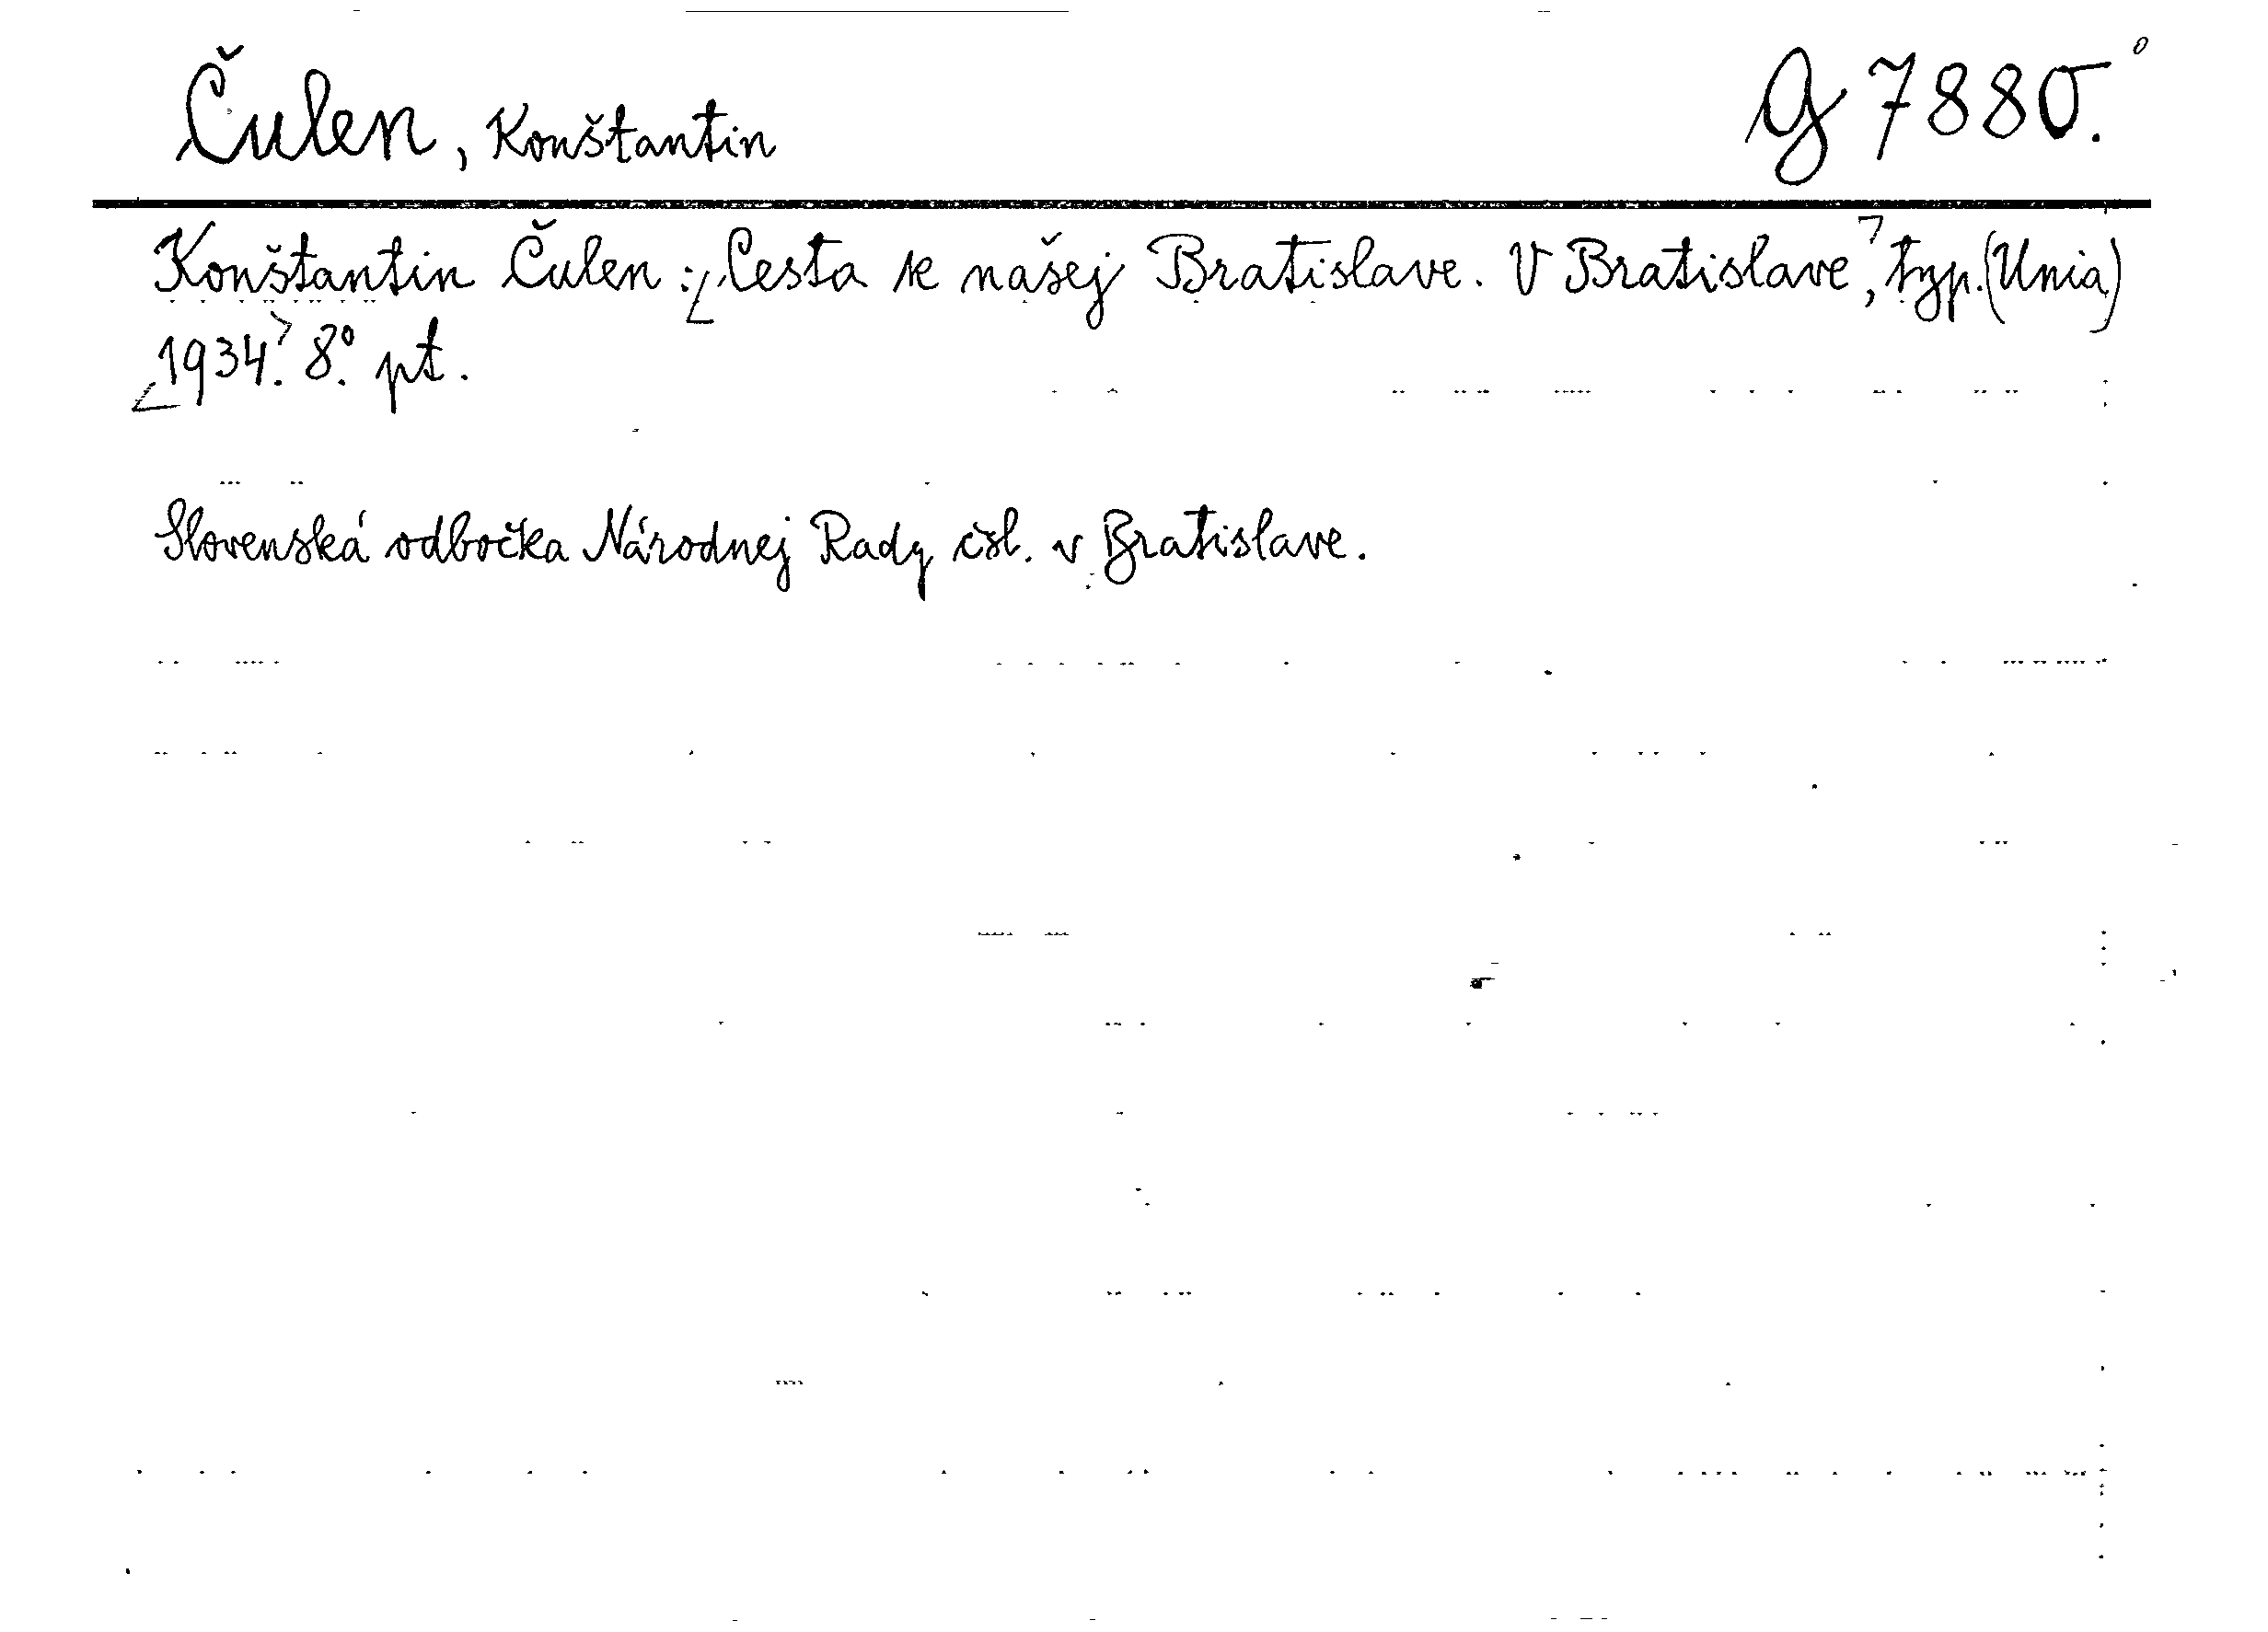 Čulen, Konštantin G 7880.
Konštantin Čulen: Cesta k našej Bratislave. V Bratislave, typ. (Unia)
1934. 8° pt.
Slovenská odbočka Národnej Rady čsl. v Bratislave.